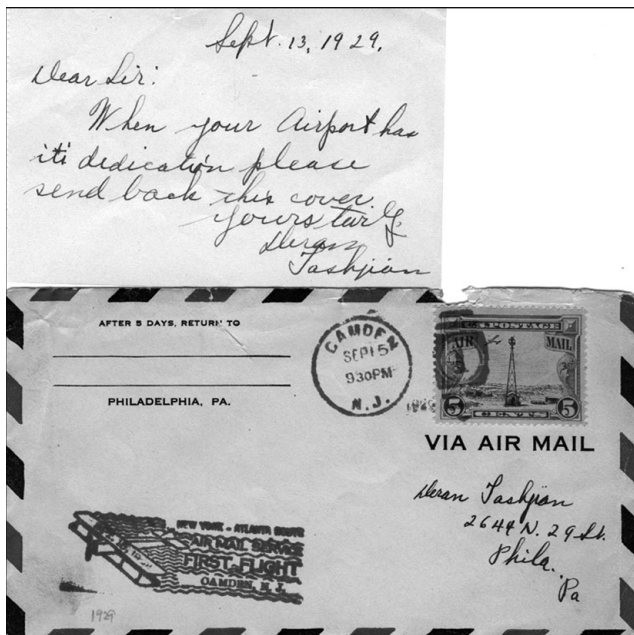 Sept. 13, 1929.
Dear Sir:
When your Airport has
it's dedication please
send back this cover.
Yours
Deran
Tashjian
AFTER 5 DAYS, RETURN TO
PHILADELPHIA, PA.
CAMDEN
SEP 15
930PM
N.J.
1929
U.S. POSTAGE
AIR MAIL
5 CENTS 5
VIA AIR MAIL
Deran Tashjian
2644 N. 29 St.
Phila.
Pa
NEW YORK - ATLANTA ROUTE
AIR MAIL SERVICE
FIRST FLIGHT
CAMDEN, N. J.
1929